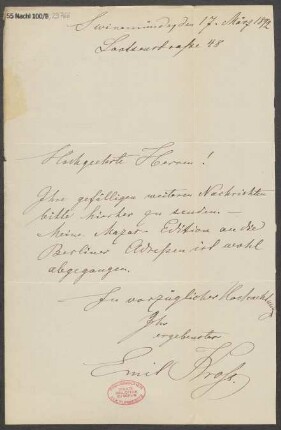 55 Nachl 100/B,
Swinemünde, den 17. März 1892
Lootsenstraße 48
Hochgeehrte Herren!
Ihre gefälligen weiteren Nachrichten
bitte hierher zu senden. —
Meine Mazur- Edition an die
Berliner Adressen ist wohl
abgegangen.
In vorzüglicher Hochachtung
Ihr
ergebenster
Emil Kross.